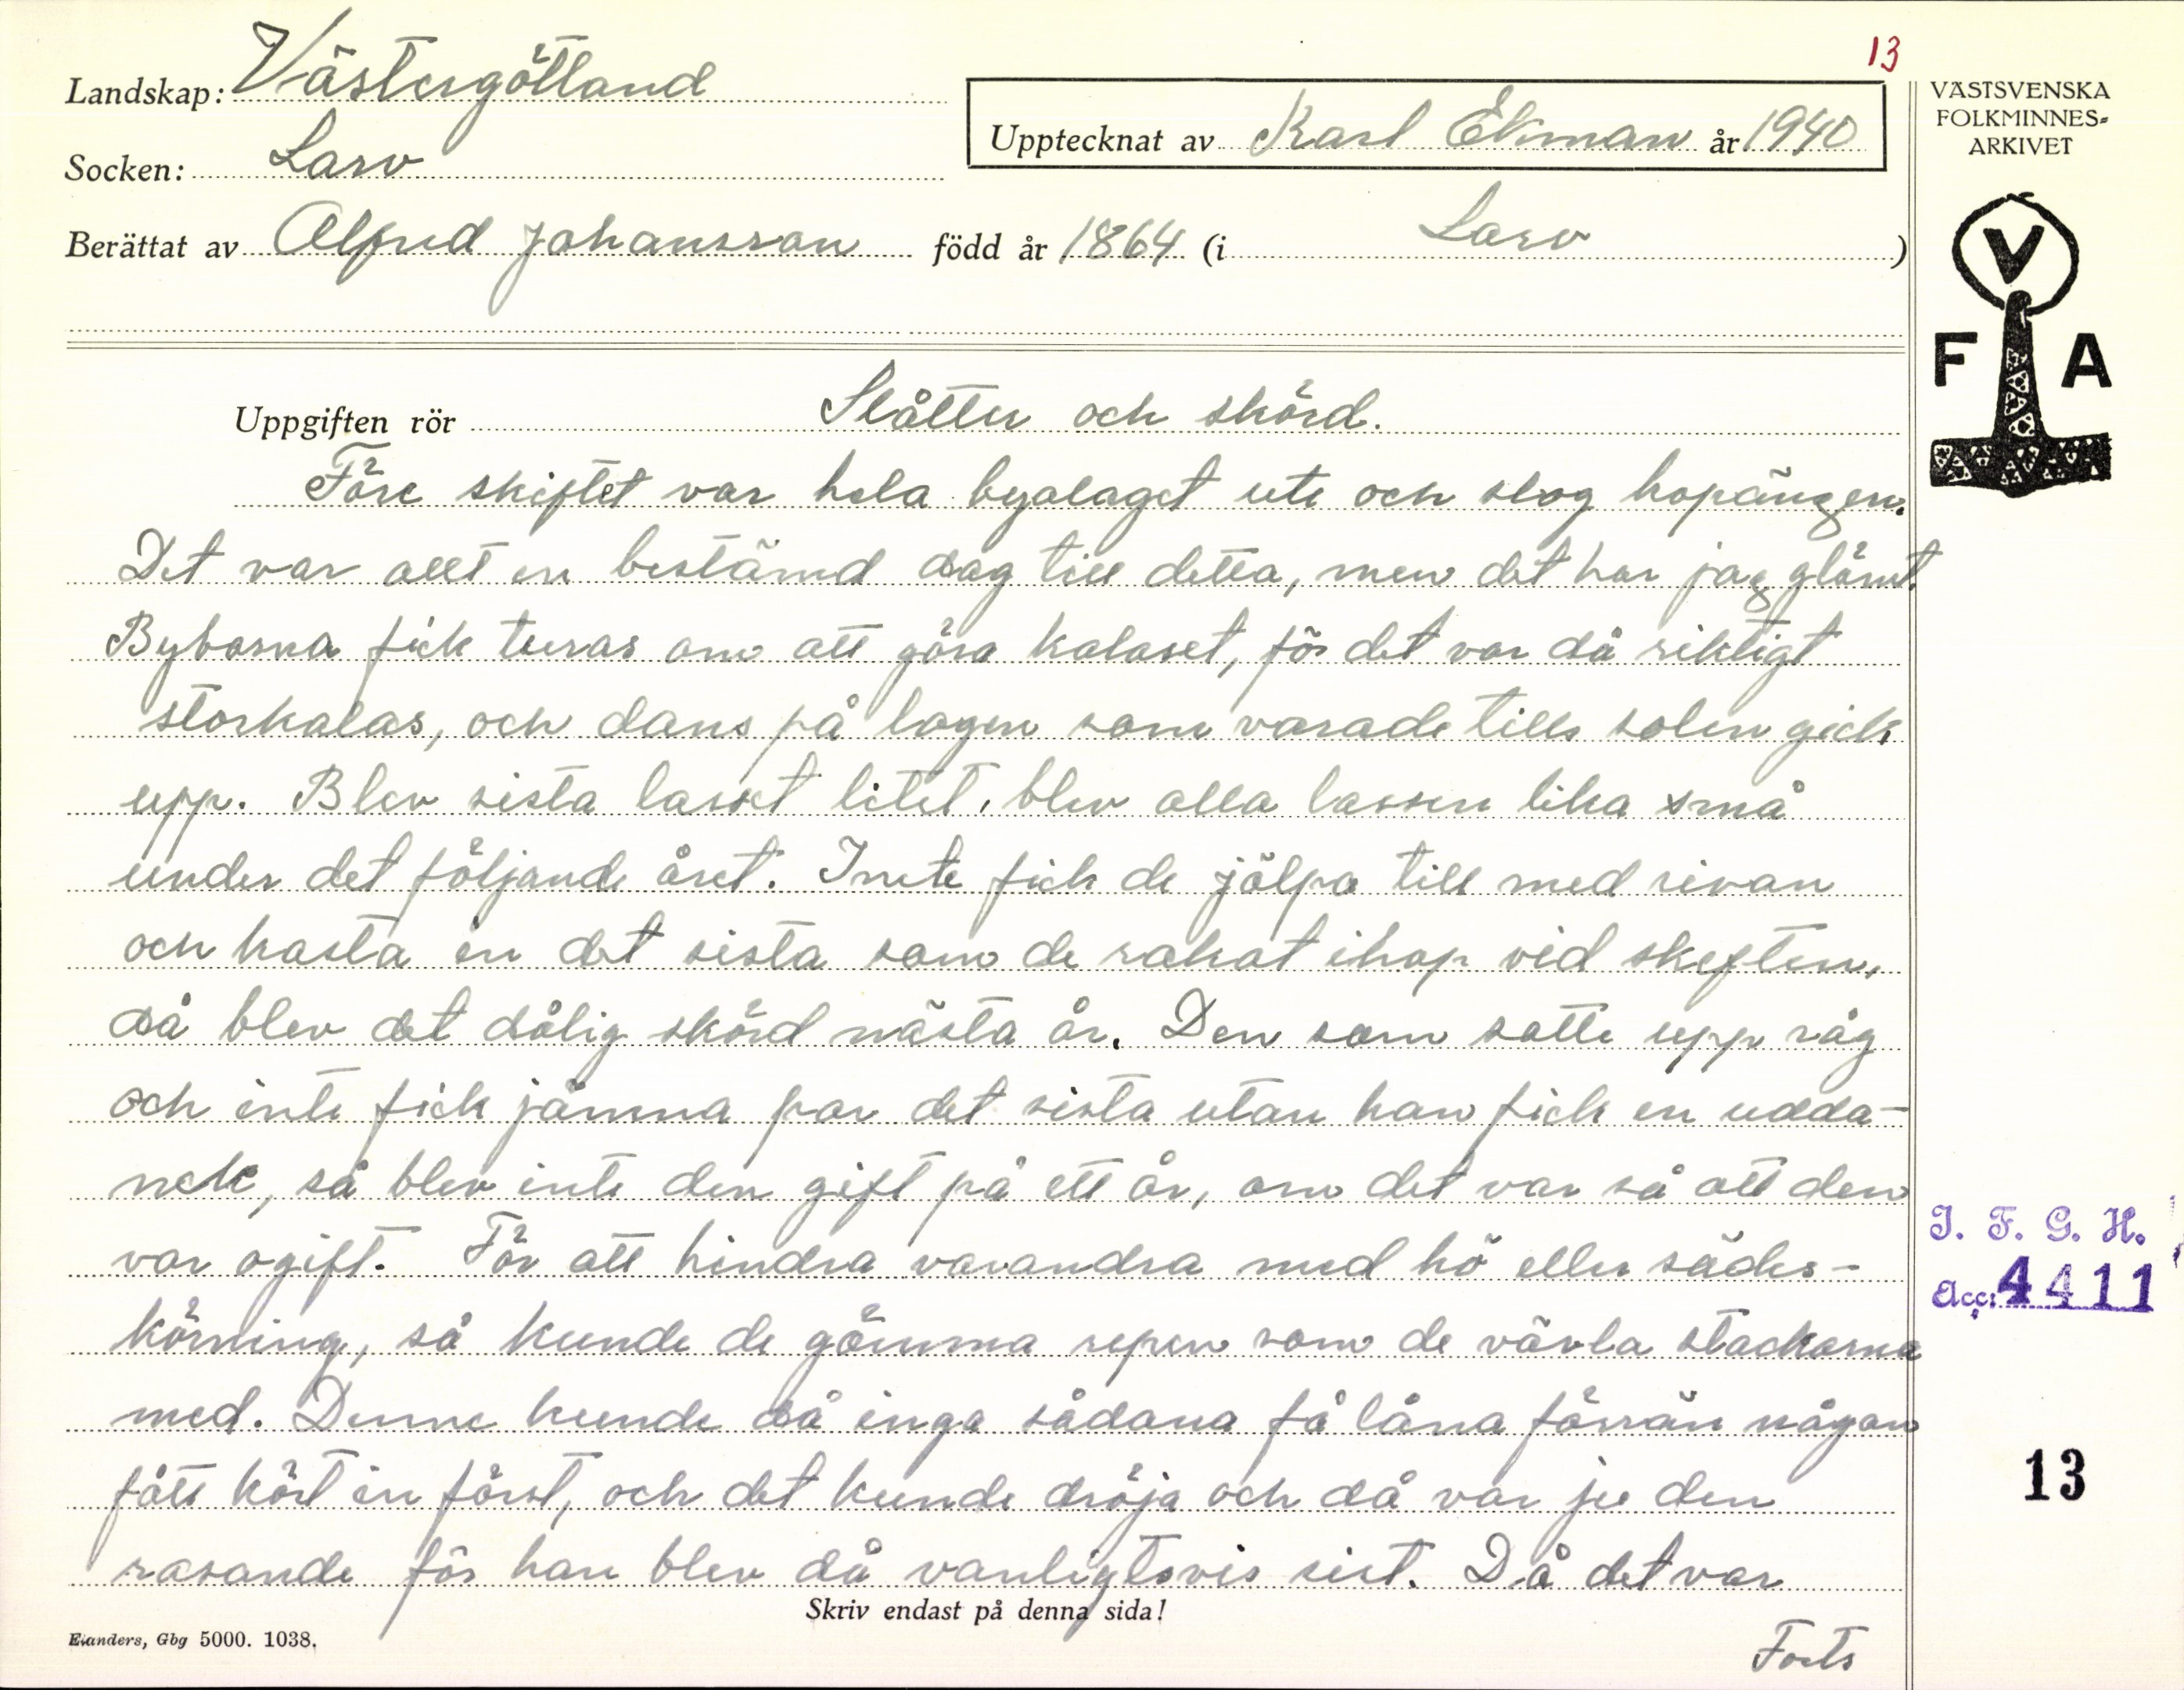 13
Landskap: Västergötland
Socken: Larv
Upptecknat av Karl Ekman år 1940
Berättat av Alfred Johansson född år 1864 (i Larv)
VÄSTSVENSKA
FOLKMINNES-
ARKIVET
V
F A
Uppgiften rör Slåtter och skörd.
Före skiftet var hela byalaget ute och slog hopängen.
Det var allt en bestämd dag till detta, men det har jag glömt.
Byborna fick turas om att göra kalaset, för det var då riktigt
storkalas, och dans på logen som varade tills solen gick
upp. Blev sista lasset litet, blev alla lassen lika små
under det följande året. Inte fick de jälpa till med rivan
och kasta in det sista som de rakat ihop vid skeften,
då blev det dålig skörd nästa år. Den som satte upp råg
och inte fick jämna par det sista utan han fick en udda-
nek, så blev inte den gift på ett år, om det var så att den
var ogift. För att hindra varandra med hö eller sädes-
körning, så kunde de gömma repen som de vävla stackarna
med. Denne kunde då inga sådana få låna förrän någon
fått kört in först, och det kunde dröja och då var ju den
rasande för han blev då vanligtsvis sist. Då det var
Skriv endast på denna sida!
Forts
Elanders, Gbg 5000. 1038.
I. F. G. H.
Acc: 4411
13